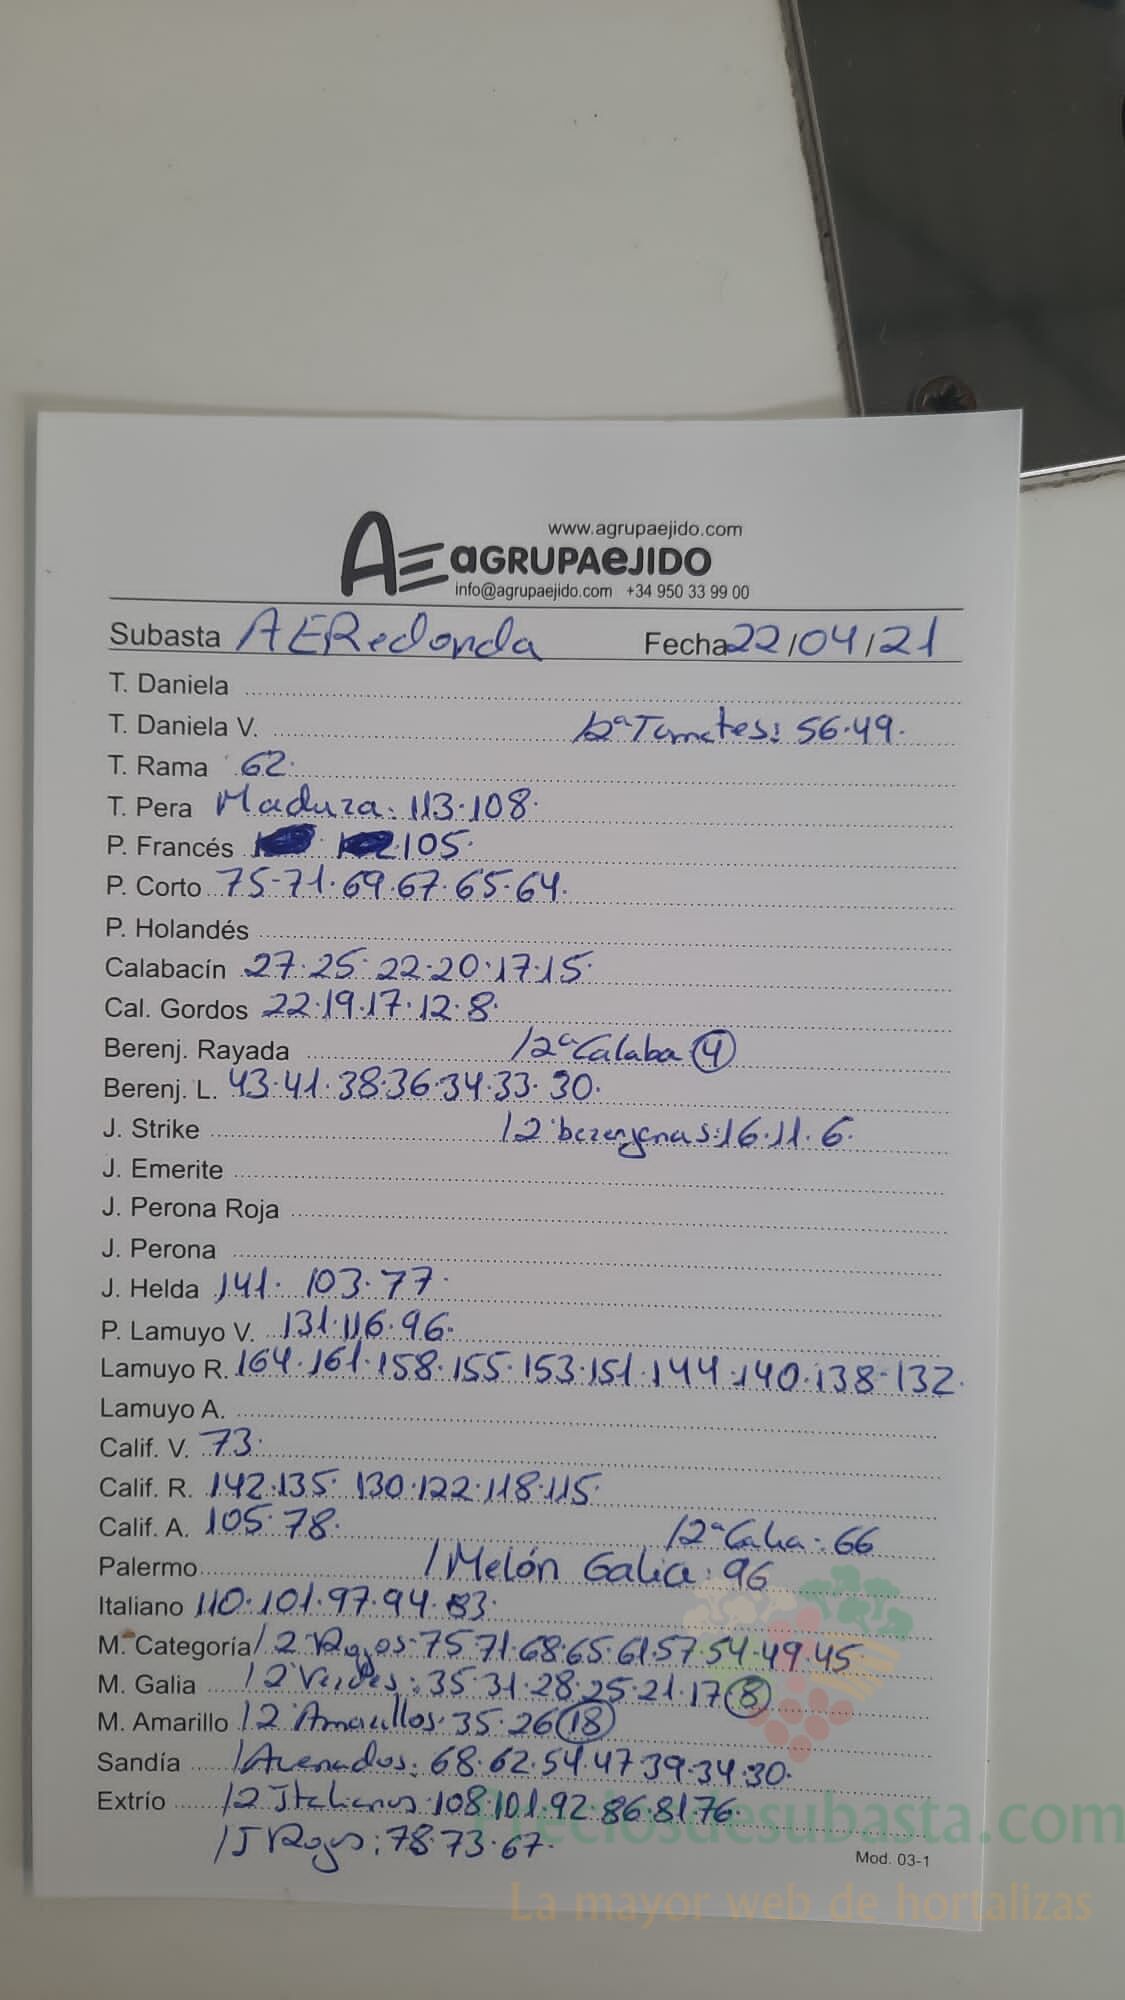 www.agrupaejido.com
AE aGRUPAeJIDO
info@agrupaejido.com +34 950 33 99 00
Subasta AERedonda Fecha 22/04/21
T. Daniela
T. Daniela V. /2ª Tomates: 56·49.
T. Rama 62.
T. Pera Madura: 113·108.
P. Francés 105.
P. Corto 75-71·69·67·65·64.
P. Holandés
Calabacín 27·25·22·20·17·15.
Cal. Gordos 22·19·17·12·8.
Berenj. Rayada /2ª Calaba (4)
Berenj. L. 43·41·38·36·34·33·30.
J. Strike /2ª berenjenas: 16·11·6.
J. Emerite
J. Perona Roja
J. Perona
J. Helda 141· 103·77.
P. Lamuyo V. 131·116·96.
Lamuyo R. 164·161·158·155·153·151·144·140·138-132.
Lamuyo A.
Calif. V. 73.
Calif. R. 142·135· 130·122·118·115.
Calif. A. 105·78. /2ª Calia: 66
Palermo /Melón Galia: 96
Italiano 110·101·97·94·83.
M. Categoría /2ª Rojos: 75·71·68·65·61·57·54·49·45
M. Galia /2ª Verdes: 35·31·28·25·21·17 (8)
M. Amarillo /2ª Amarillos: 35·26 (18)
Sandía /Asenados: 68·62·54·47·39·34·30.
Extrío /2 Italianos: 108·101·92·86·81·76.
/J Rojos: 78·73·67.
Mod. 03-1
Preciosdesubasta.com
La mayor web de hortalizas